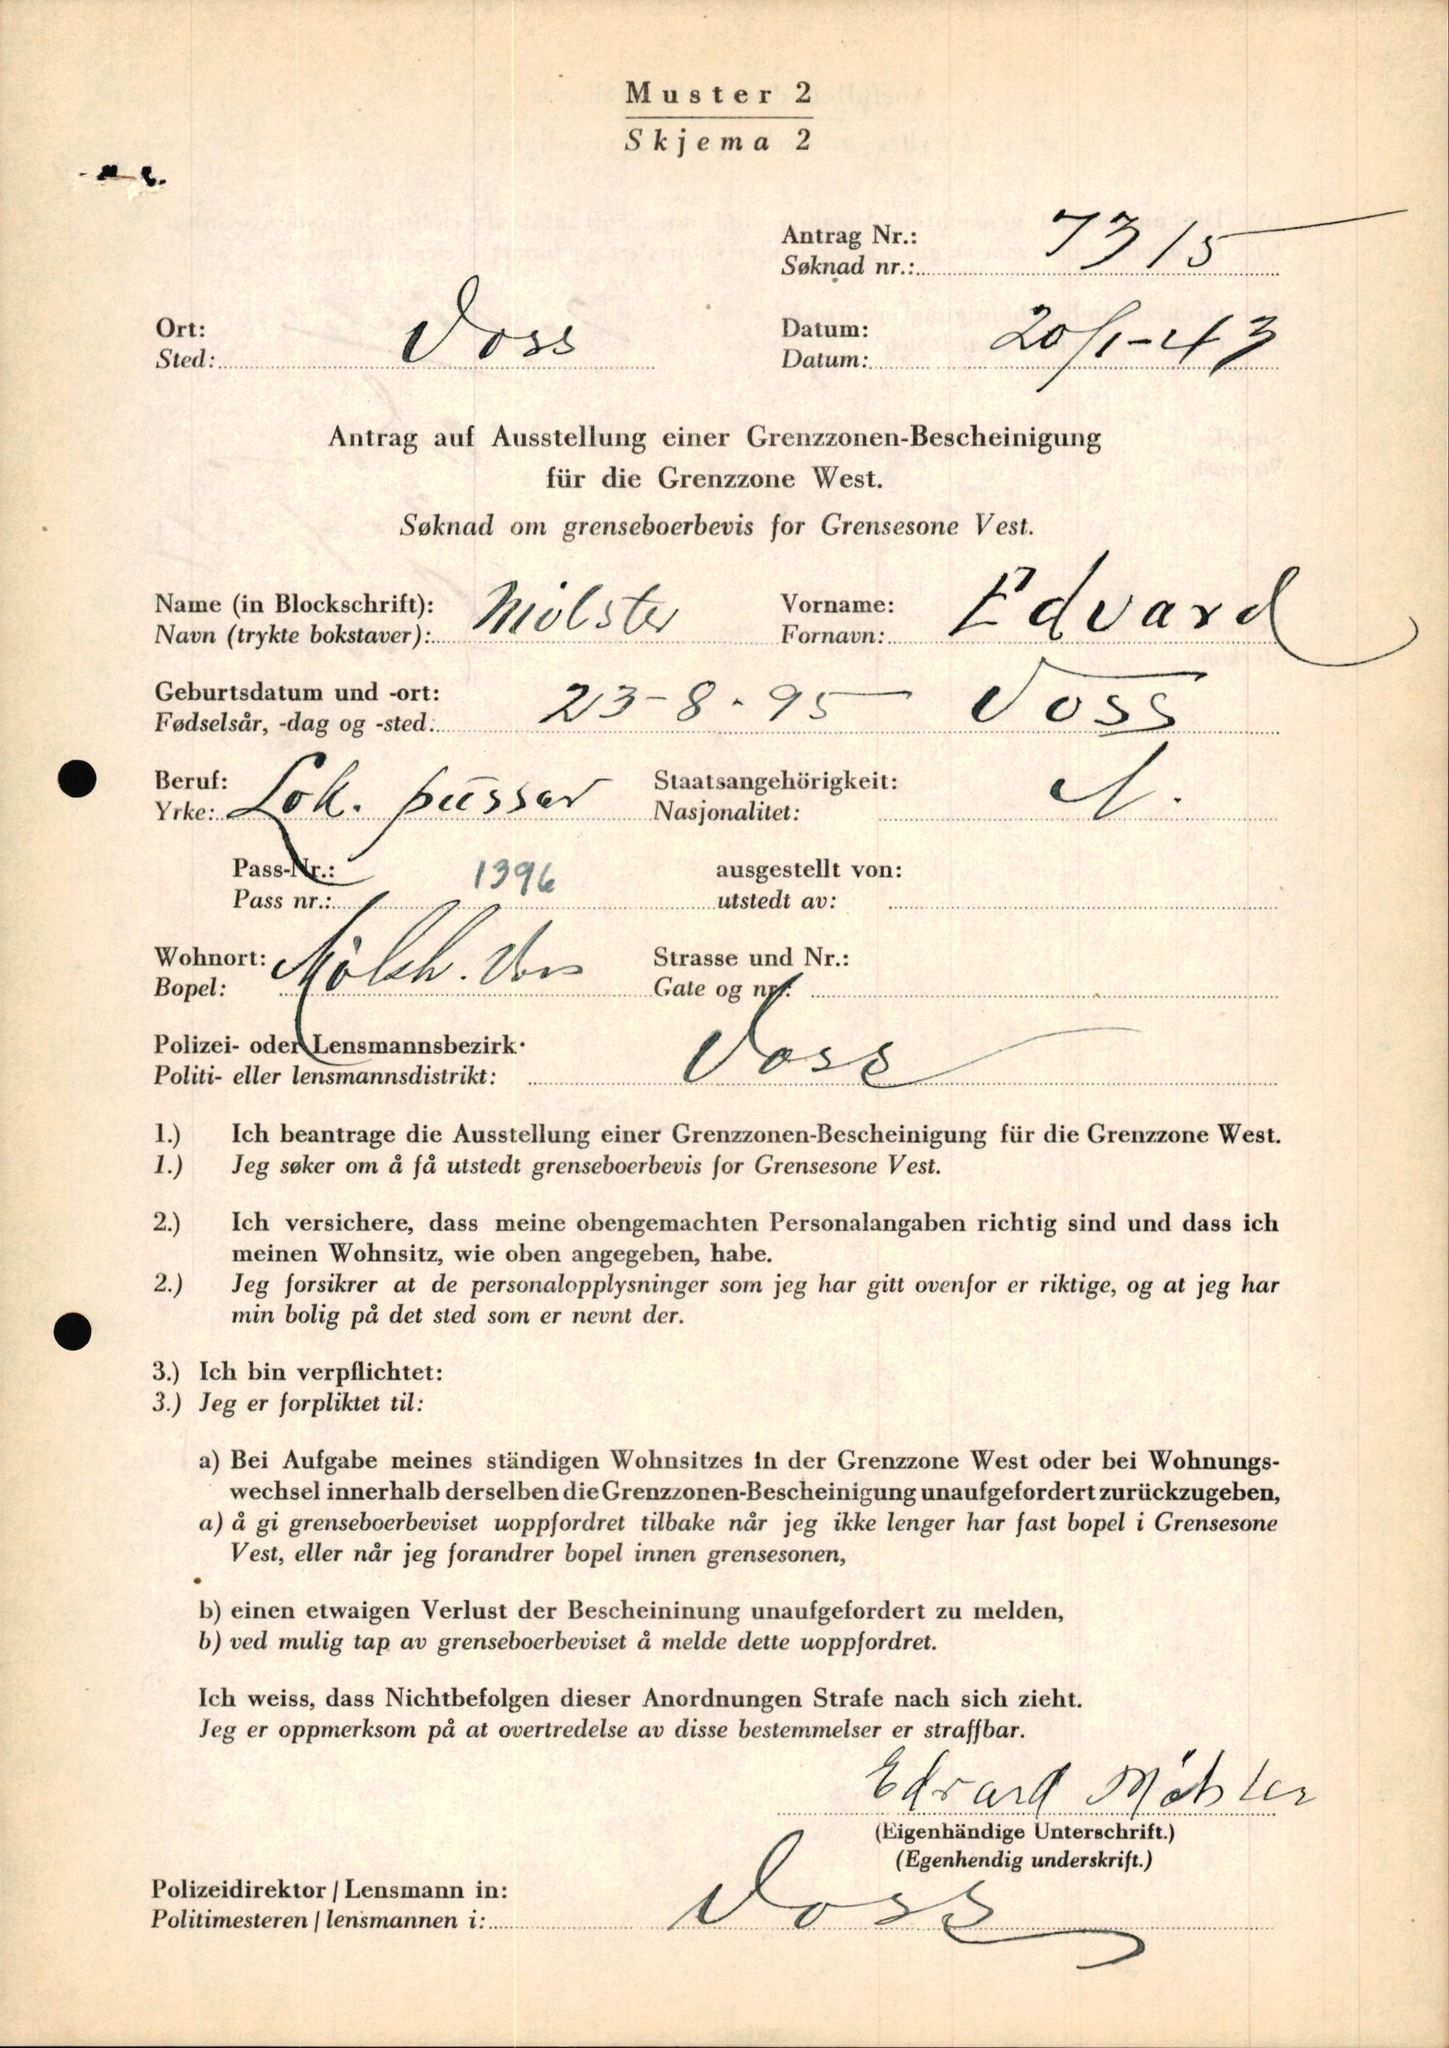 Muster 2
Skjema 2
Antrag Nr.:
Søknad nr.: 7315
Ort:
Sted: Voss
Datum:
Datum: 20/1-43
Antrag auf Ausstellung einer Grenzzonen-Bescheinigung
für die Grenzzone West.
Søknad om grenseboerbevis for Grensesone Vest.
Name (in Blockschrift): Vorname:
Navn (trykte bokstaver): Mølster Fornavn: Edvard
Geburtsdatum und -ort:
Fødselsår, -dag og -sted: 23-8-95 Voss
Beruf: Staatsangehörigkeit:
Yrke: Lok. pusser Nasjonalitet: N.
Pass-Nr.: ausgestellt von:
Pass nr.: 1396 utstedt av:
Wohnort: Strasse und Nr.:
Bopel: Voss Gate og nr.:
Polizei- oder Lensmannsbezirk:
Politi- eller lensmannsdistrikt: Voss
1.) Ich beantrage die Ausstellung einer Grenzzonen-Bescheinigung für die Grenzzone West.
1.) Jeg søker om å få utstedt grenseboerbevis for Grensesone Vest.
2.) Ich versichere, dass meine obengemachten Personalangaben richtig sind und dass ich
meinen Wohnsitz, wie oben angegeben, habe.
2.) Jeg forsikrer at de personalopplysninger som jeg har gitt ovenfor er riktige, og at jeg har
min bolig på det sted som er nevnt der.
3.) Ich bin verpflichtet:
3.) Jeg er forpliktet til:
a) Bei Aufgabe meines ständigen Wohnsitzes in der Grenzzone West oder bei Wohnungs-
wechsel innerhalb derselben die Grenzzonen-Bescheinigung unaufgefordert zurückzugeben,
a) å gi grenseboerbeviset uoppfordret tilbake når jeg ikke lenger har fast bopel i Grensesone
Vest, eller når jeg forandrer bopel innen grensesonen,
b) einen etwaigen Verlust der Bescheininung unaufgefordert zu melden,
b) ved mulig tap av grenseboerbeviset å melde dette uoppfordret.
Ich weiss, dass Nichtbefolgen dieser Anordnungen Strafe nach sich zieht.
Jeg er oppmerksom på at overtredelse av disse bestemmelser er straffbar.
Edvard Mölster
(Eigenhändige Unterschrift.)
(Egenhendig underskrift.)
Polizeidirektor / Lensmann in:
Politimesteren / lensmannen i: Voss